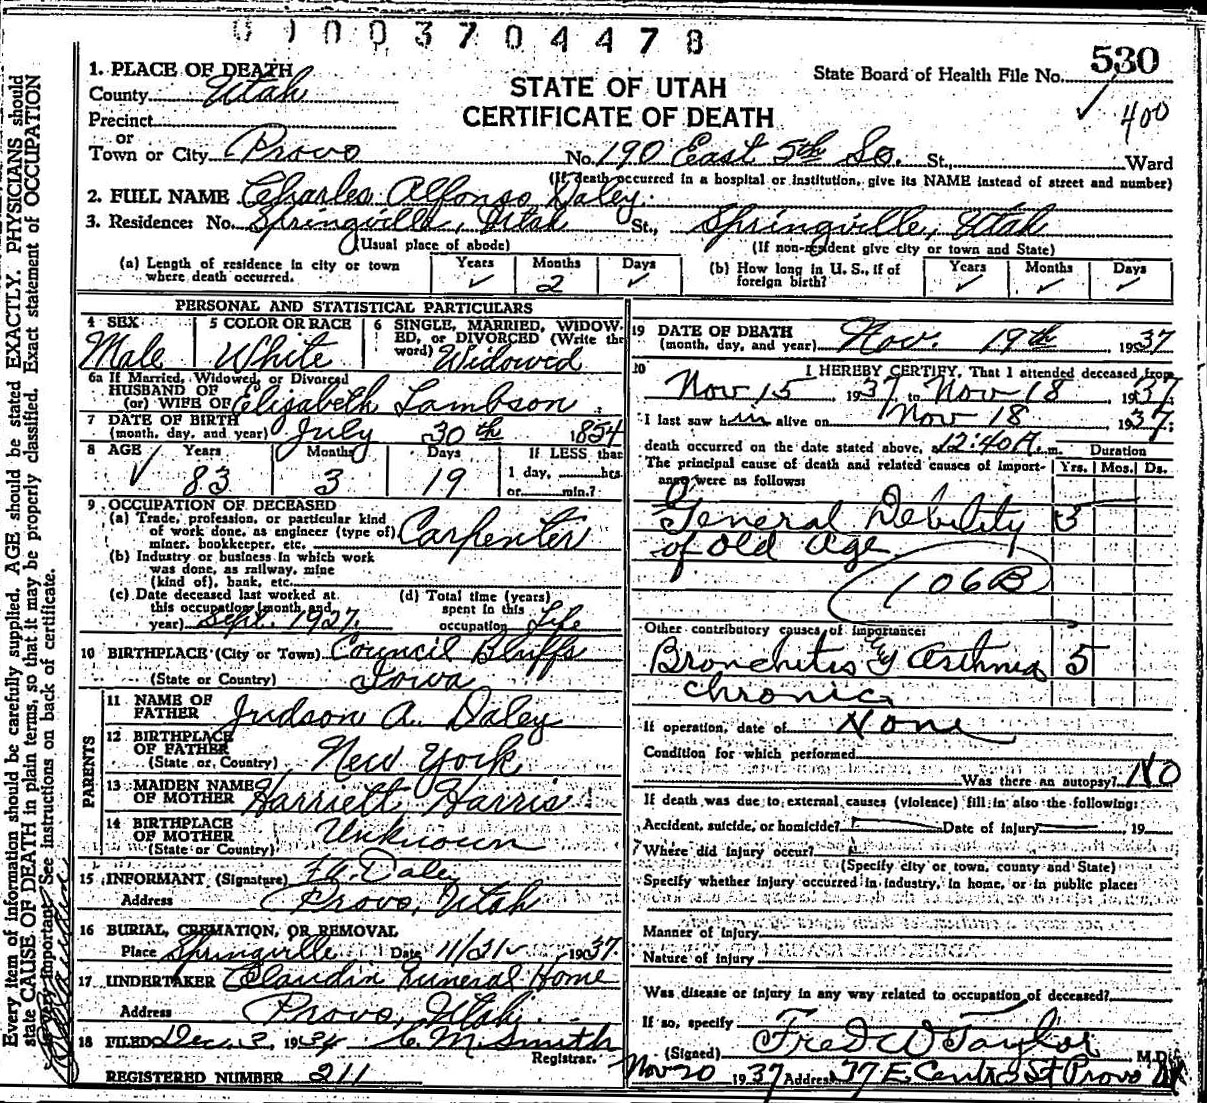 0 1 0 0 3 7 0 4 4 7 8
530
State Board of Health File No.
400
STATE OF UTAH
CERTIFICATE OF DEATH
1. PLACE OF DEATH
County Utah
Precinct
or
Town or City Provo No. 190 East 5th So. St. Ward
(If death occurred in a hospital or institution, give its NAME instead of street and number)
2. FULL NAME Charles Alfonso Daley.
3. Residence: No. Springville, Utah St., Springville, Utah
(Usual place of abode) (If non-resident give city or town and State)
(a) Length of residence in city or town where death occurred. Years ✓ Months 2 Days ✓
(b) How long in U. S., if of foreign birth? Years ✓ Months ✓ Days ✓
PERSONAL AND STATISTICAL PARTICULARS
4 SEX Male
5 COLOR OR RACE White
6 SINGLE, MARRIED, WIDOWED, or DIVORCED (Write the word) Widowed
6a If Married, Widowed, or Divorced
HUSBAND OF
(or) WIFE OF Elizabeth Lambson
7 DATE OF BIRTH
(month, day, and year) July 30th 1854
8 AGE Years 83 Months 3 Days 19 If LESS than 1 day, hrs. or min.?
9 OCCUPATION OF DECEASED
(a) Trade, profession, or particular kind of work done, as engineer (type of) miner, bookkeeper, etc. Carpenter
(b) Industry or business in which work was done, as railway, mine (kind of), bank, etc.
(c) Date deceased last worked at this occupation (month and year) Sept. 1927.
(d) Total time (years) spent in this occupation Life
10 BIRTHPLACE (City or Town) Council Bluffs
(State or Country) Iowa
PARENTS
11 NAME OF FATHER Judson A. Daley
12 BIRTHPLACE OF FATHER
(State or Country) New York
13 MAIDEN NAME OF MOTHER Harriett Harris
14 BIRTHPLACE OF MOTHER
(State or Country) Unknown
15 INFORMANT (Signature) Daley
Address Provo, Utah
16 BURIAL, CREMATION, OR REMOVAL
Place Springville Date 11/21 1937.
17 UNDERTAKER Claudin Funeral Home
Address Provo, Utah.
18 FILED Dec. 3, 1934 M. Smith
Registrar.
REGISTERED NUMBER 211
19 DATE OF DEATH
(month, day, and year) Nov. 19th, 1937
20 I HEREBY CERTIFY, That I attended deceased from
Nov 15 1937, to Nov 18, 1937.
I last saw him alive on Nov 18, 1937;
death occurred on the date stated above, at 12:40 A. m.
The principal cause of death and related causes of importance were as follows:
Duration
Yrs. Mos. Ds.
General Debility
of Old Age
106B
Other contributory causes of importance:
Bronchitis & Asthma 5
Chronic
If operation, date of None
Condition for which performed
Was there an autopsy? No
If death was due to external causes (violence) fill in also the following:
Accident, suicide, or homicide? Date of injury 19
Where did injury occur?
(Specify city or town, county and State)
Specify whether injury occurred in industry, in home, or in public place:
Manner of injury
Nature of injury
Was disease or injury in any way related to occupation of deceased?
If so, specify
(Signed) Fred W Taylor M.D.
Nov 20 1937 Address 77 E. Center St Provo
Every item of information should be carefully supplied. AGE should be stated EXACTLY. PHYSICIANS should
state CAUSE OF DEATH in plain terms, so that it may be properly classified. Exact statement of OCCUPATION
is very important. See instructions on back of certificate.